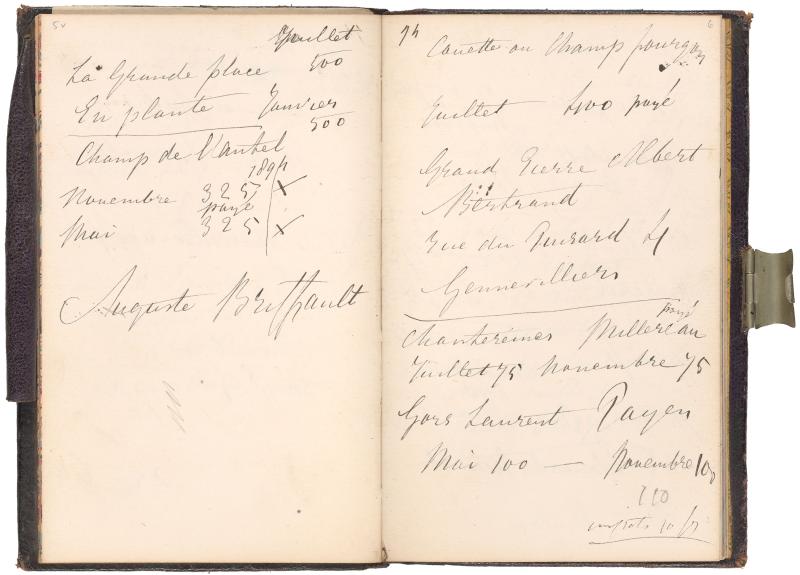 5v
Juillet
La Grande place 500
En plante Janvier
500
Champ de l'autel
1894
Novembre 325 x
payé
Mai 325 x
Auguste Briffault
6
94
Couette ou Champ fourgon
Juillet 400 payé
Grand Pierre Albert
Bertrand
rue du Puisard 4
Gennevilliers
payé
Chantereines Millereau
Juillet 75 Novembre 75
Gors Laurent Payen
Mai 100 — Novembre 100
110
impots 10 fr